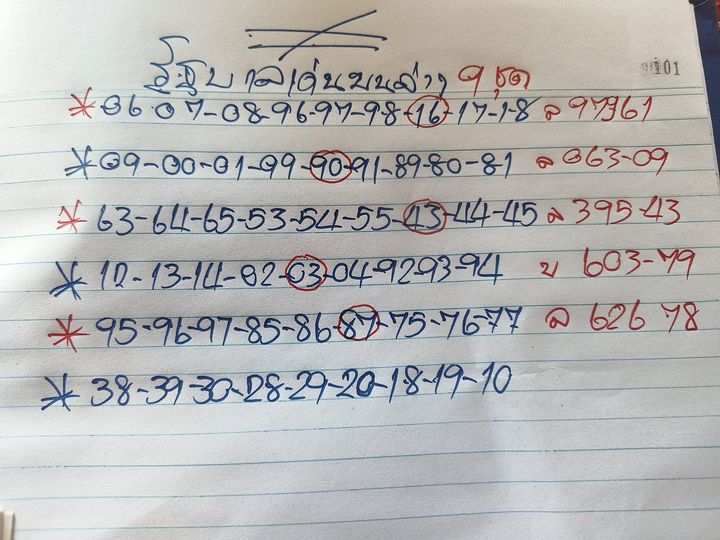 รัฐบาลเด่นบนล่าง 9 ชุด
101
* 06-07-08-96-97-98-16-17-18 ล 97361
* 09-00-01-99-90-91-89-80-81 ล 063-09
* 63-64-65-53-54-55-43-44-45 ล 395-43
* 12-13-14-02-03-04-92-93-94 บ 603-79
* 95-96-97-85-86-87-75-76-77 ล 626 78
* 38-39-30-28-29-20-18-19-10